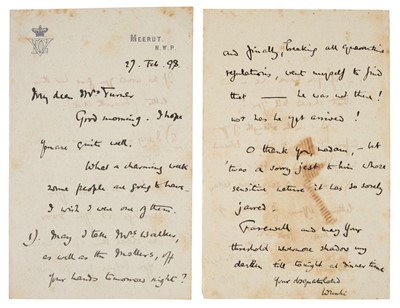 MEERUT.
N.W.P.
27. Feb 97.
My dear Mrs Turner
Good morning. I hope
you are quite well.
What a charming week
some people are going to have.
I wish I were one of them.
1). May I take Mrs Walker,
as well as the Mallers, off
your hands tomorrow night?
and finally, breaking all quarantine
regulations, went myself to find
that —— he was not there!
nor has he yet arrived!
O thank you madam, - but
'twas a sorry jest to him whose
sensitive nature it has so sorely
jarred.
Farewell and may your
threshold nevermore shadow my
darken till tonight at dinner time
Your